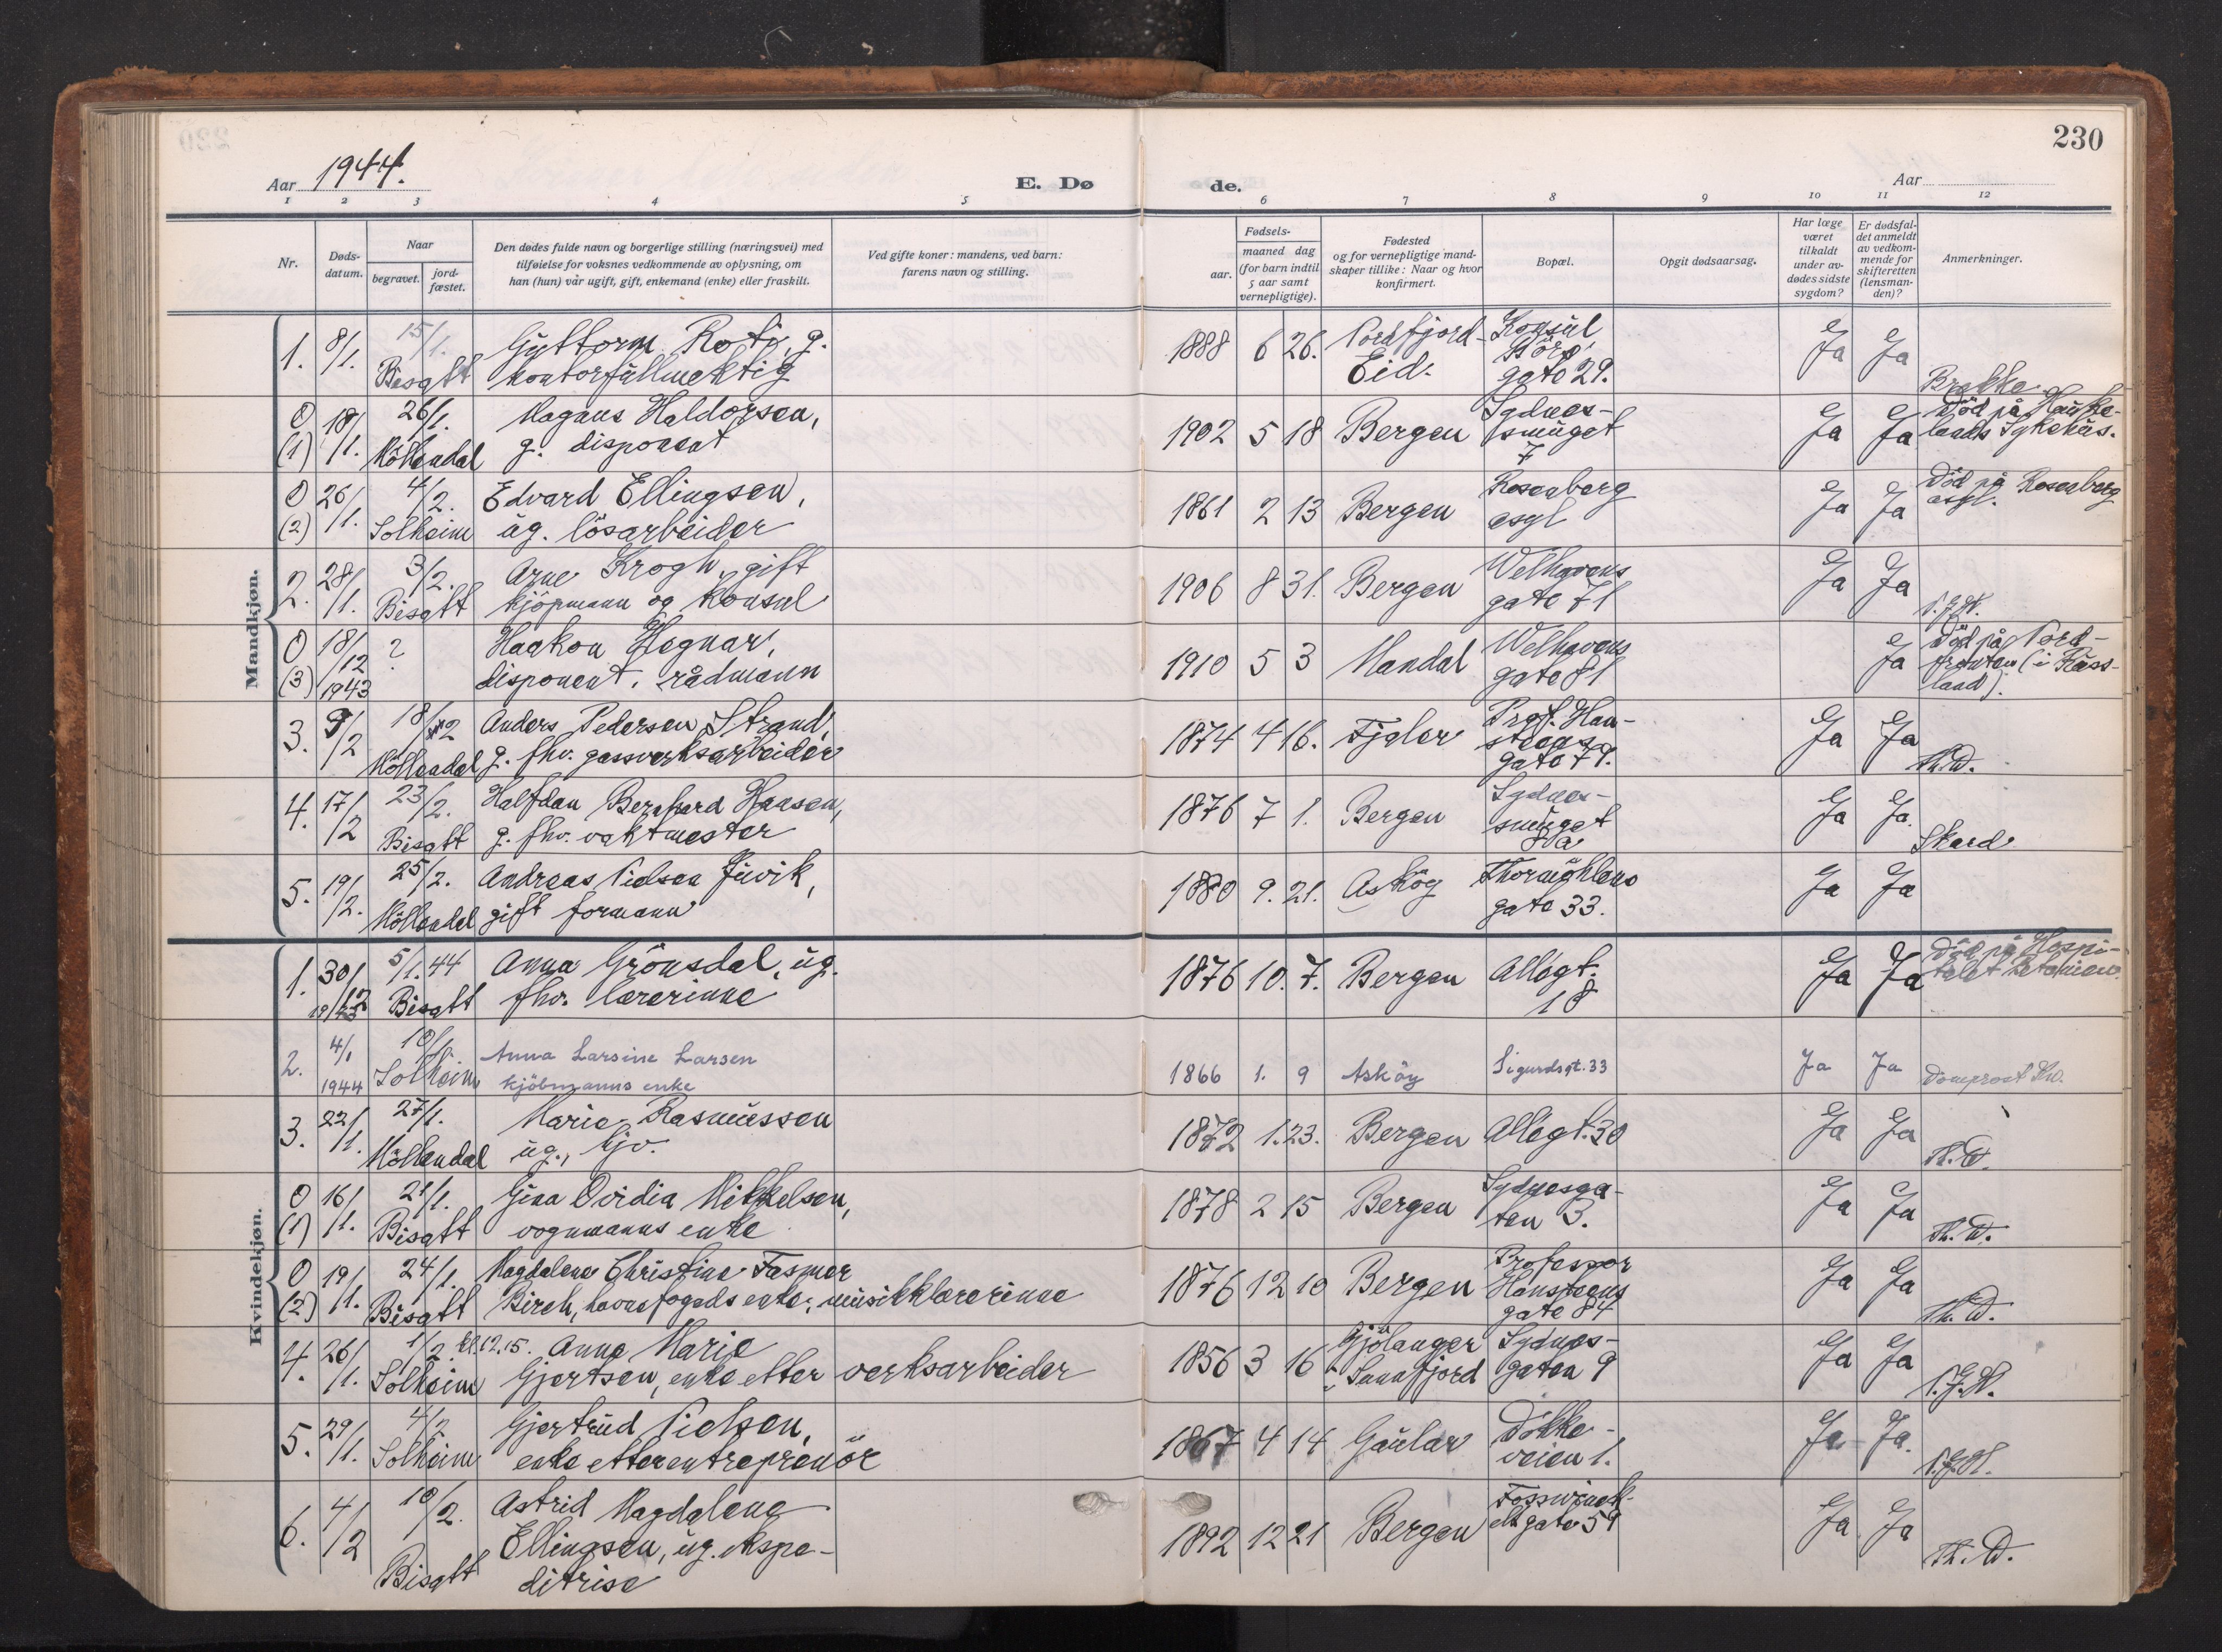 230
Aar 1944.
E. Dø
de.
Aar
1 2 3 4 5 6 7 8 9 10 11 12
Nr.
Døds-
datum.
Naar
begravet.
jord-
fæstet.
Den dødes fulde navn og borgerlige stilling (næringsvei) med
tilføielse for voksnes vedkommende av oplysning, om
han (hun) var ugift, gift, enkemand (enke) eller fraskilt.
Ved gifte koner: mandens, ved barn:
farens navn og stilling.
Fødsels-
aar.
maaned dag
(for barn indtil
5 aar samt
vernepligtige).
Fødested
og for vernepligtige mand-
skaper tillike: Naar og hvor
konfirmert.
Bopæl.
Opgit dødsaarsag.
Har læge
været
tilkaldt
under av-
dødes sidste
sygdom?
Er dødsfal-
det anmeldt
av vedkom-
mende for
skifteretten
(lensman-
den)?
Anmerkninger.
Mandkjøn.
1. 8/1. 15/1. Guttorm Roti, g. 1888 6 26. Nordfjord- Konsul Ja Ja
Bisatt kontorfullmektig Eid. Börs
gate 29. Brekke
0 18/1. 26/1. Magnus Haldorsen, 1902 5 18 Bergen Sydnes- Ja Ja Död på Hauke-
(1) Möllendal g. disponent smuget lands Sykehus.
7
0 26/1. 4/2. Edvard Ellingsen, 1861 2 13 Bergen Rosenberg Ja Ja Död på Rosenberg
(2) Solheim ug. lösarbeider asyl asyl.
2. 28/1. 3/2. Arne Krogh, gift 1906 8 31. Bergen Welhavens Ja Ja
Bisatt kjöpmann og konsul gate 71
0 18/12 ? Haakon Hegnar, 1910 5 3 Mandal Welhavens Ja Död på Nord-
(3) 1943 disponent, rådmann gate 81 fronten (i Russ-
land).
3. 9/2 18/2 Anders Pedersen Strand, 1874 4 16. Fjaler Prof. Han- Ja Ja
Möllendal g. fhv. gassverksarbeider steens
gate 79. Th. W.
4. 17/2 23/2. Halfdan Bernhard Hansen, 1876 7 1. Bergen Sydnes- Ja Ja.
Bisatt g. fhv. vaktmester smuget
Skard
5. 19/2. 25/2. Andreas Nielsen Juvik, 1880 9. 21. Asköy Thormöhlens Ja Ja
Möllendal gift formann gate 33.
Kvindekjøn.
1. 30/12 5/1.44 Anna Grönsdal, ug. 1876 10. 7. Bergen Allégt. Ja Ja Död på Hospi-
1943 Bisatt fhv. lærerinne 18 talet Betanien.
2. 4/1 10/1 Anna Larsine Larsen 1866 1. 9 Asköy Sigurdsgt. 33 Ja Ja
1944 Solheim kjöbmanns enke Domprost Hv.
3. 22/1. 27/1. Marie Rasmussen 1872 1. 23. Bergen Allégt. 30 Ja Ja
Möllendal ug., hjv. Th. W.
0 16/1. 21/1. Gina Ovidia Mikkelsen, 1878 2 15 Bergen Sydnesga- Ja Ja
(1) Bisatt vognmanns enke ten 3. Th. W.
0 19/1. 24/1. Magdalena Christine Fasmer 1876 12 10 Bergen Professor Ja Ja
(2) Bisatt Birch, havnefogeds enke, musikklærerinne Hansteens
gate 84 Th. W.
4. 26/1. 1/2. kl. 12.15. Anna Marie 1856 3 16 Gjölanger Sydnes- Ja Ja
Solheim Gjertsen, enke etter verksarbeider i Sunnfjord gaten 9
5. 29/1. 4/2 Gjertrud Nielsen, 1867 4 14 Gaular Dokke- Ja Ja.
Solheim enke etter entreprenör veien 1.
6. 4/2 10/2. Astrid Magdalena 1892 12 21 Bergen Fosswinck- Ja Ja
Ellingsen, ug. ekspe- els gate 59
Bisatt ditrise Th. W.